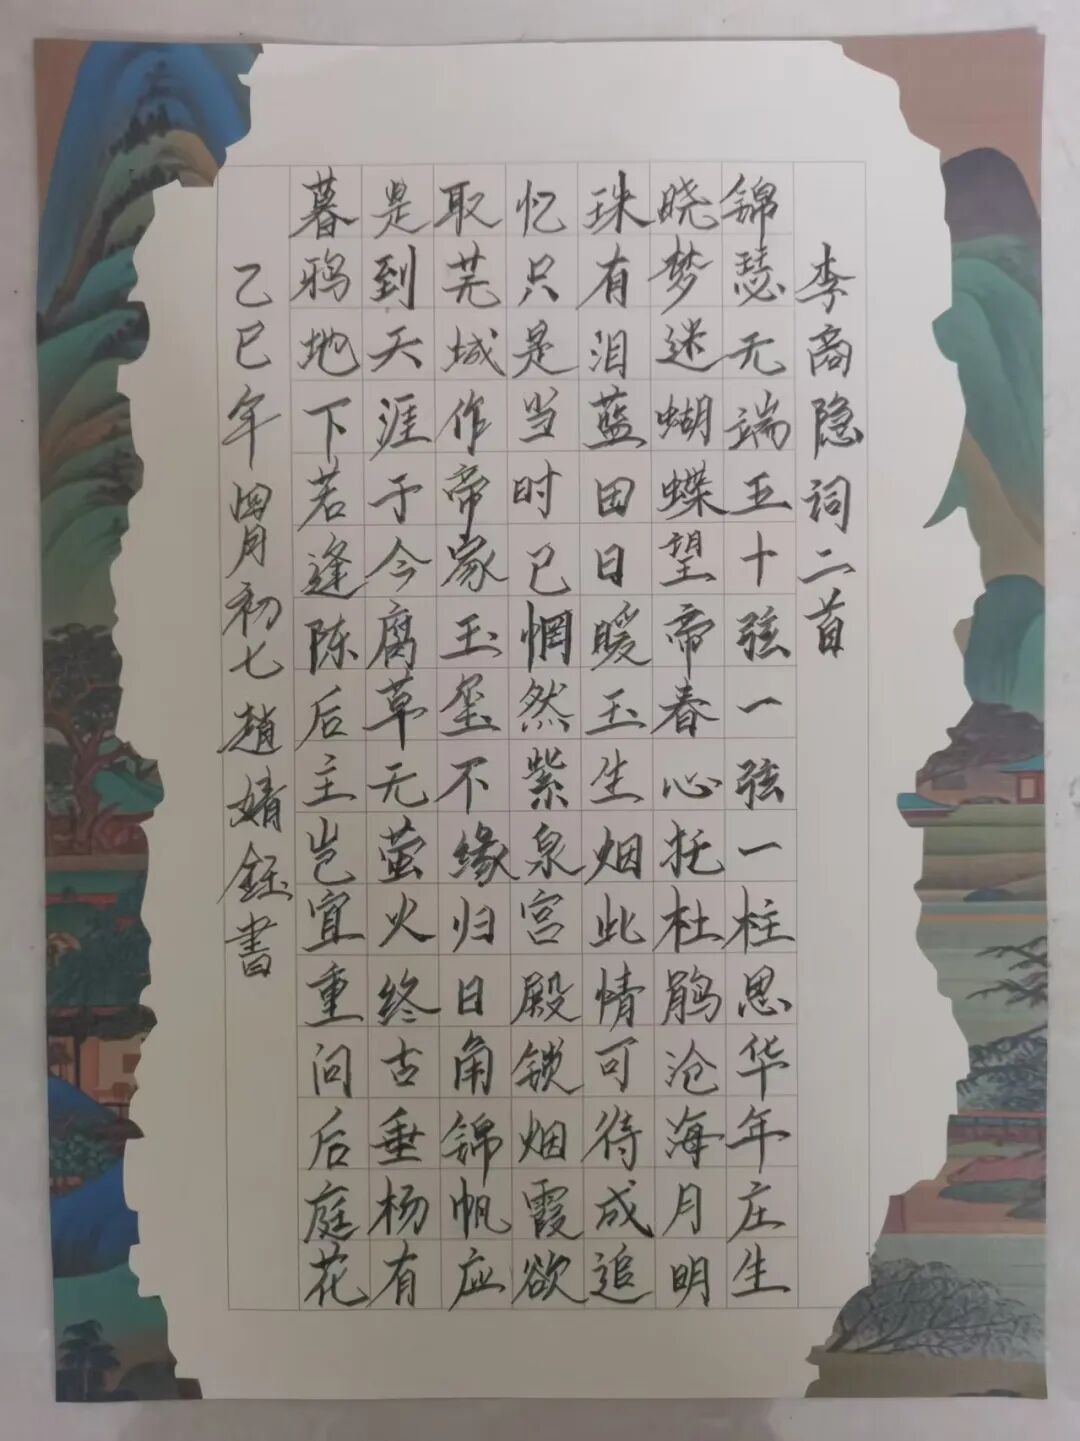 李商隐词二首
锦瑟无端五十弦一弦一柱思华年庄生
晓梦迷蝴蝶望帝春心托杜鹃沧海月明
珠有泪蓝田日暖玉生烟此情可待成追
忆只是当时已惘然紫泉宫殿锁烟霞欲
取芜城作帝家玉玺不缘归日角锦帆应
是到天涯于今腐草无萤火终古垂杨有
暮鸦地下若逢陈后主岂宜重问后庭花
乙巳年四月初七趙婧鈺書